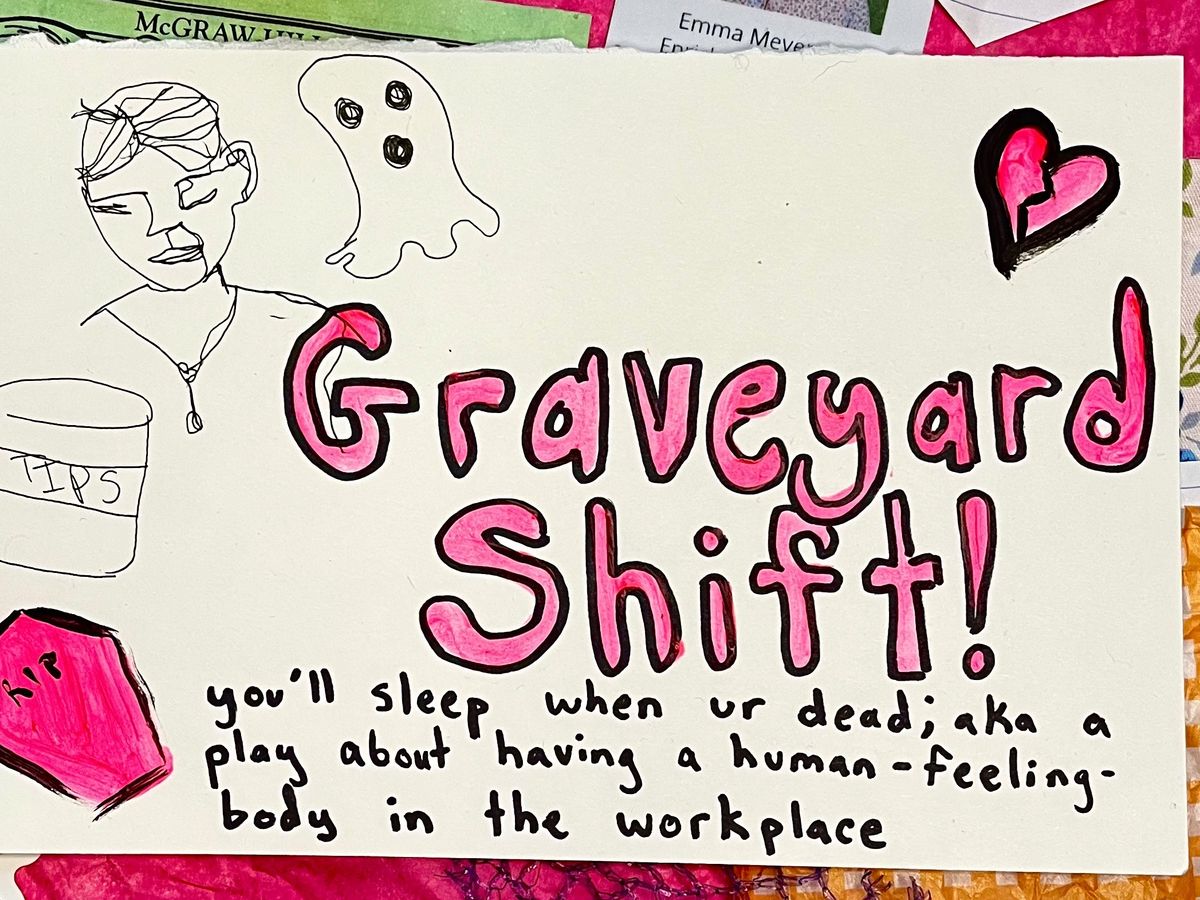 McGRAW-HILL
Emma Meyer
TIPS
RIP
Graveyard
Shift!
you'll sleep when ur dead; aka a
play about having a human-feeling-
body in the workplace